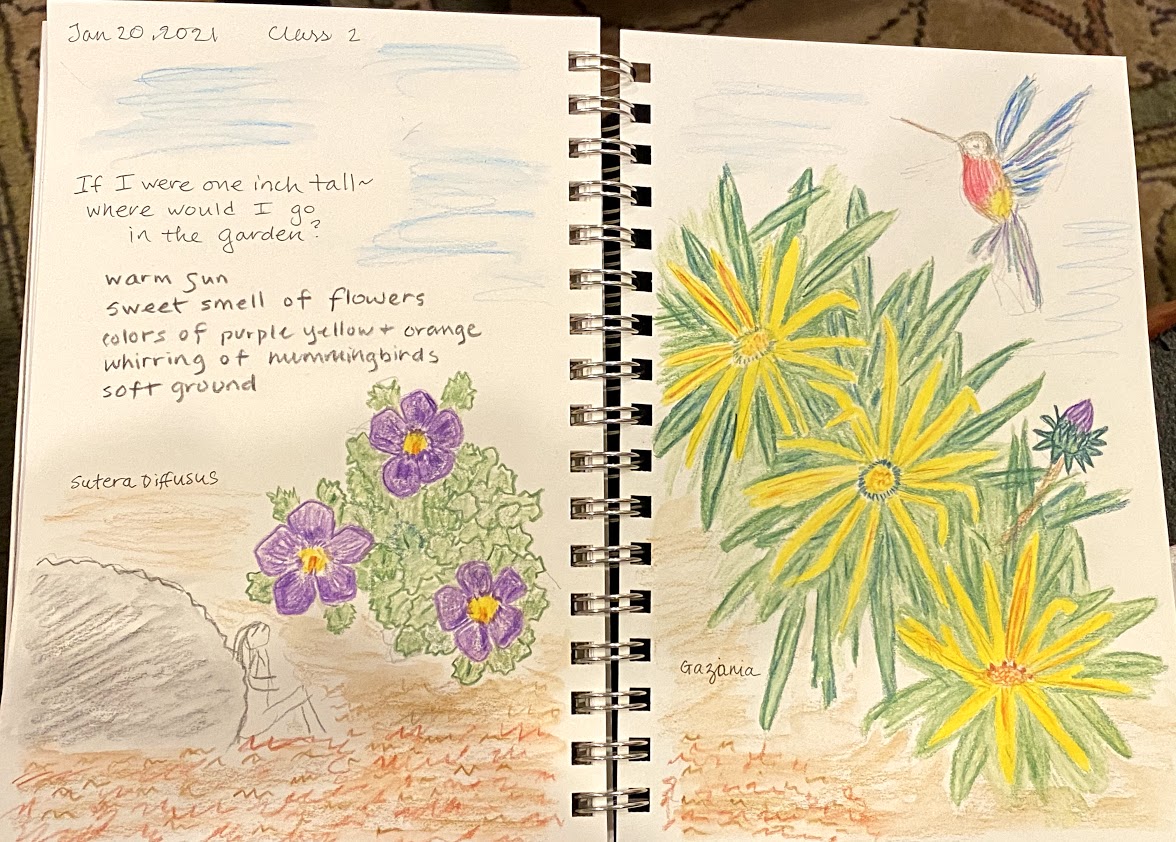 Jan 20, 2021 Class 2
If I were one inch tall~
where would I go
in the garden?
warm sun
sweet smell of flowers
colors of purple yellow + orange
whirring of hummingbirds
soft ground
Sutera Diffusus
Gazania